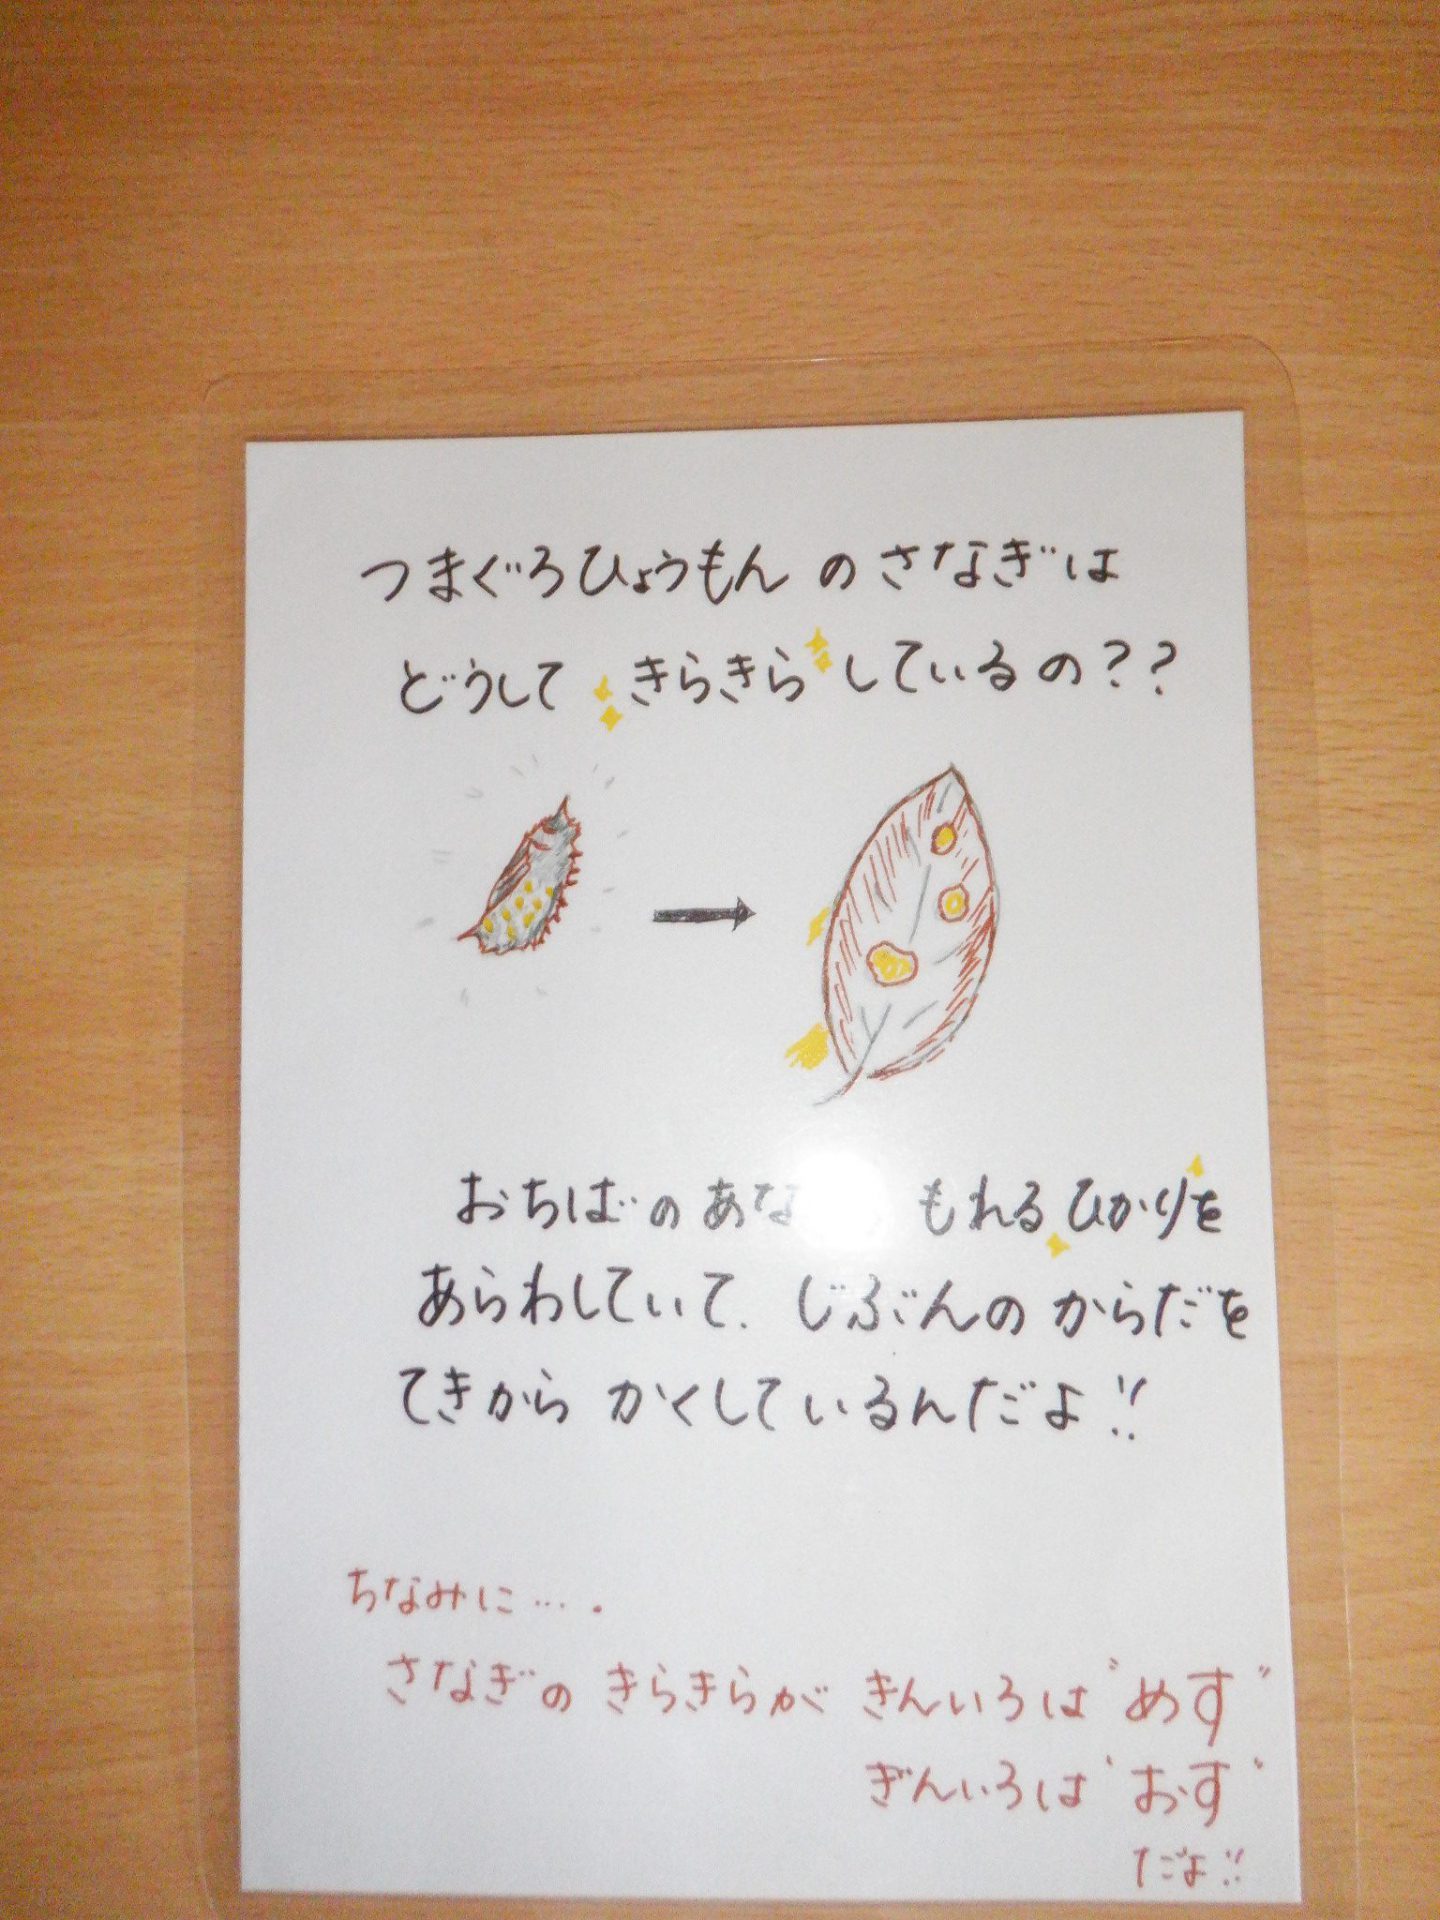 つまぐろひょうもんのさなぎは
どうしてきらきらしているの??
おちばのあな もれるひかりを
あらわしていて、じぶんのからだを
てきから かくしているんだよ!!
ちなみに….
さなぎの きらきらが きんいろは"めす"
ぎんいろは"おす"
だよ!!